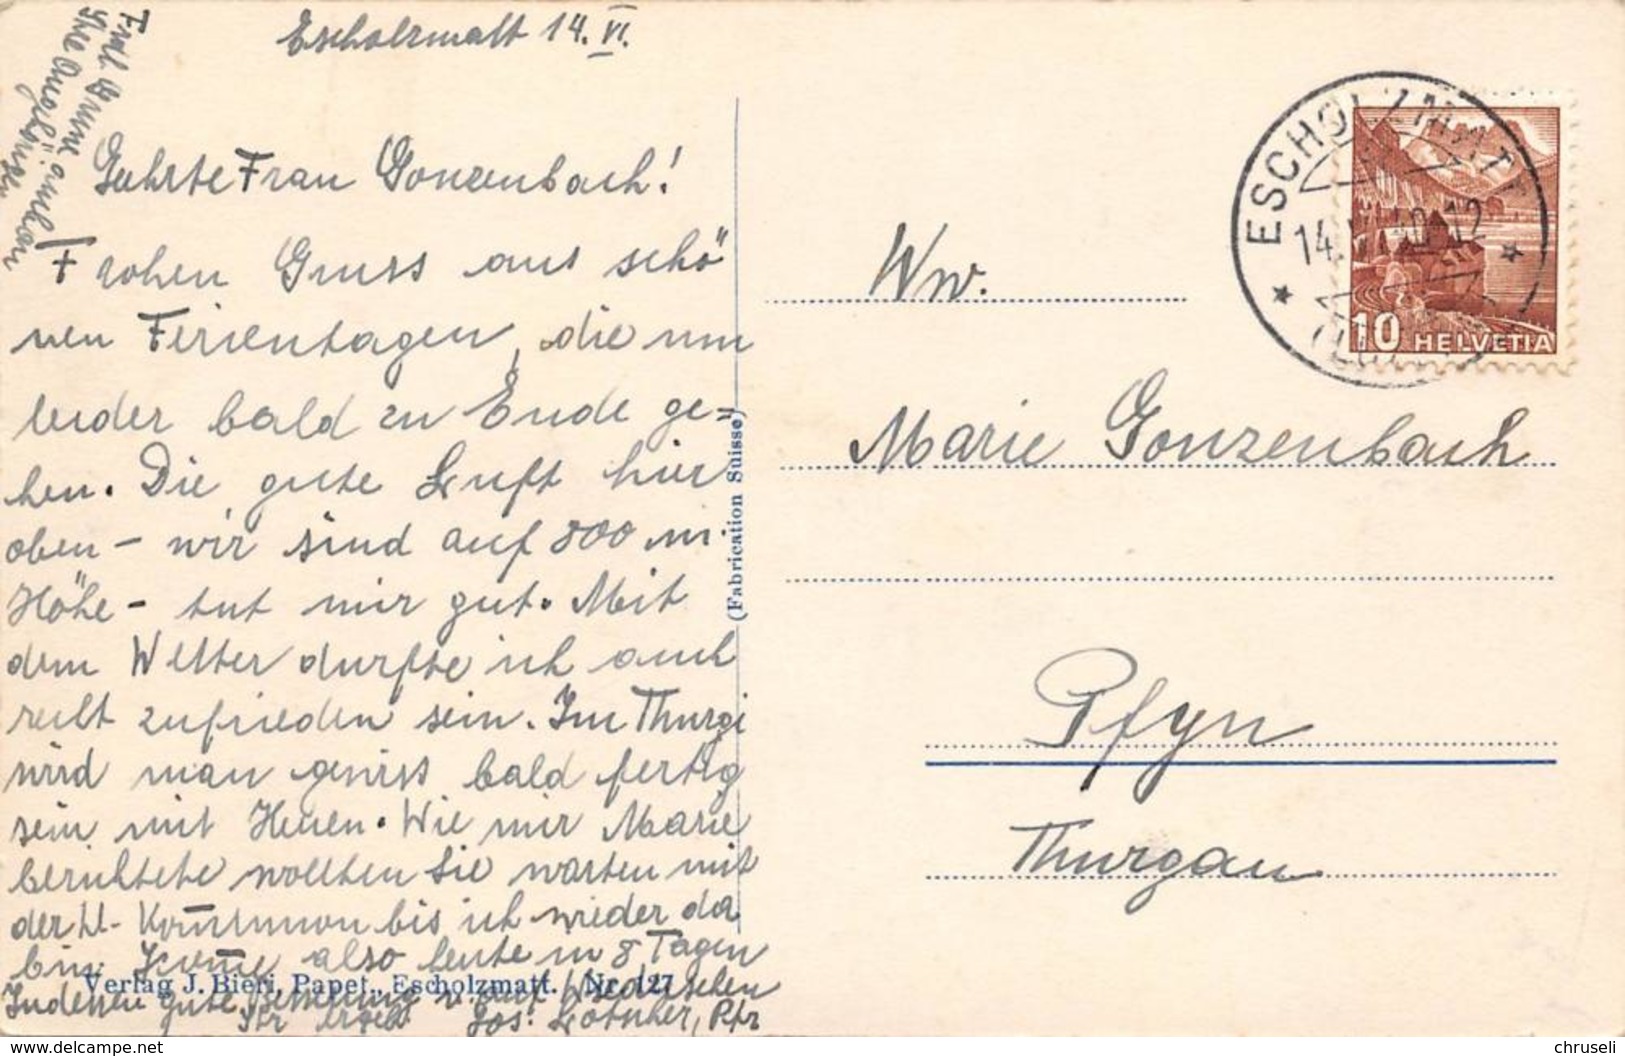 Escholzmatt 14. VI.
Geehrte Frau Gonzenbach!
Frohen Gruss aus schö
nen Ferientagen, die nun
leider bald zu Ende ge=
hen. Die gute Luft hier
oben – wir sind auf 800 m.
Höhe – tut mir gut. Mit
dem Wetter durfte ich auch
recht zufrieden sein. Im Thurgi
wird man gewiss bald fertig
sein mit Heuen. Wie mir Marie
berichtete wollten Sie warten mit
der hl. Kommunion bis ich wieder da
bin. Kome also heute in 8 Tagen
Indessen gute Besserung u. auf Wiedersehen
Ihr ergeb. Jos. Lötscher, Pfr
Frdl. Grüsse an
Ihre Angehörigen
Verlag J. Bieri, Papet., Escholzmatt. Nr. 127
(Fabrication Suisse)
ESCHOLZMATT
14. VI. 40. 12
10 HELVETIA
Ww.
Marie Gonzenbach
Pfyn
Thurgau
© chruseli
www.delcampe.net